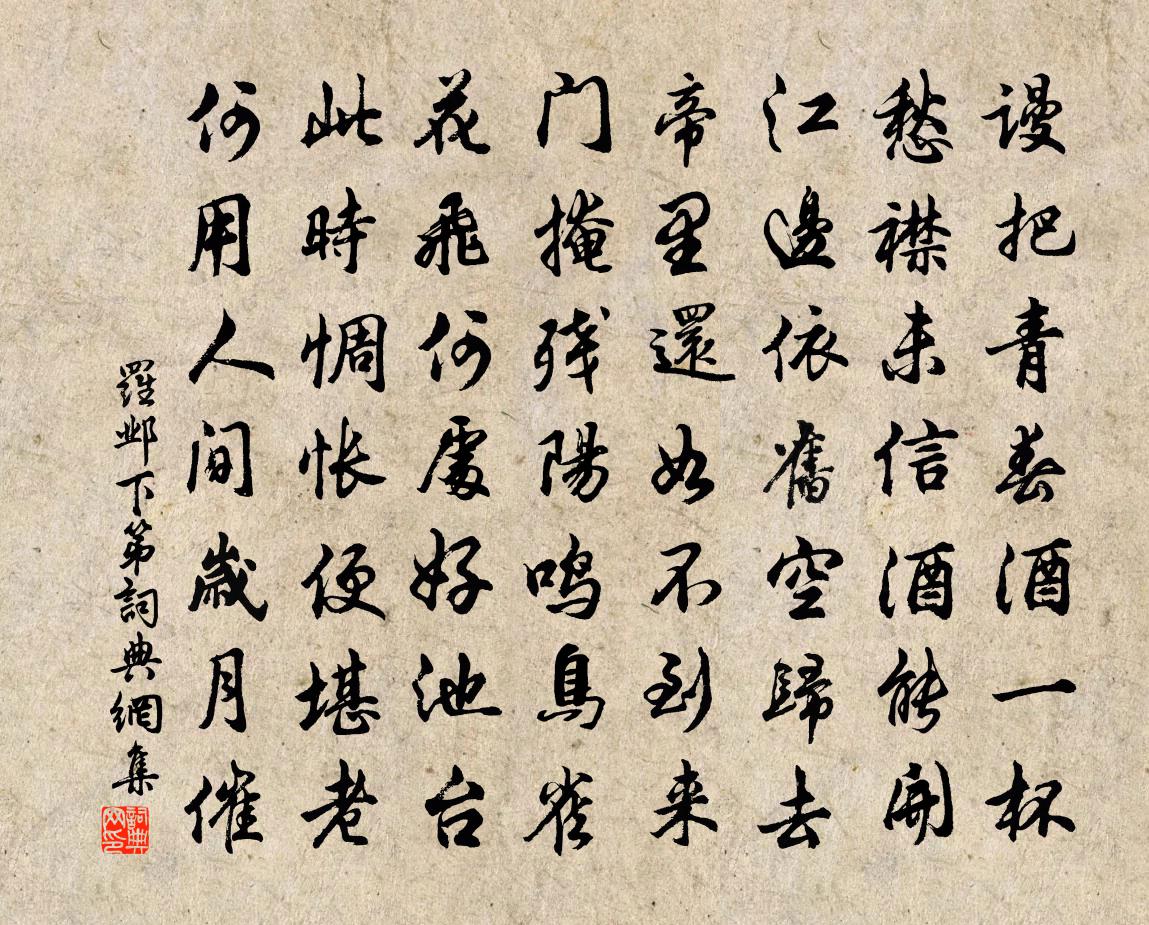 谩把青春酒一杯
愁襟未信酒能開
江邊依舊空歸去
帝里還如不到来
门掩残陽鳴鳥雀
花飛何處好池台
此時惆怅便堪老
何用人間歲月催
羅邺下第詞典網集
詞典网印